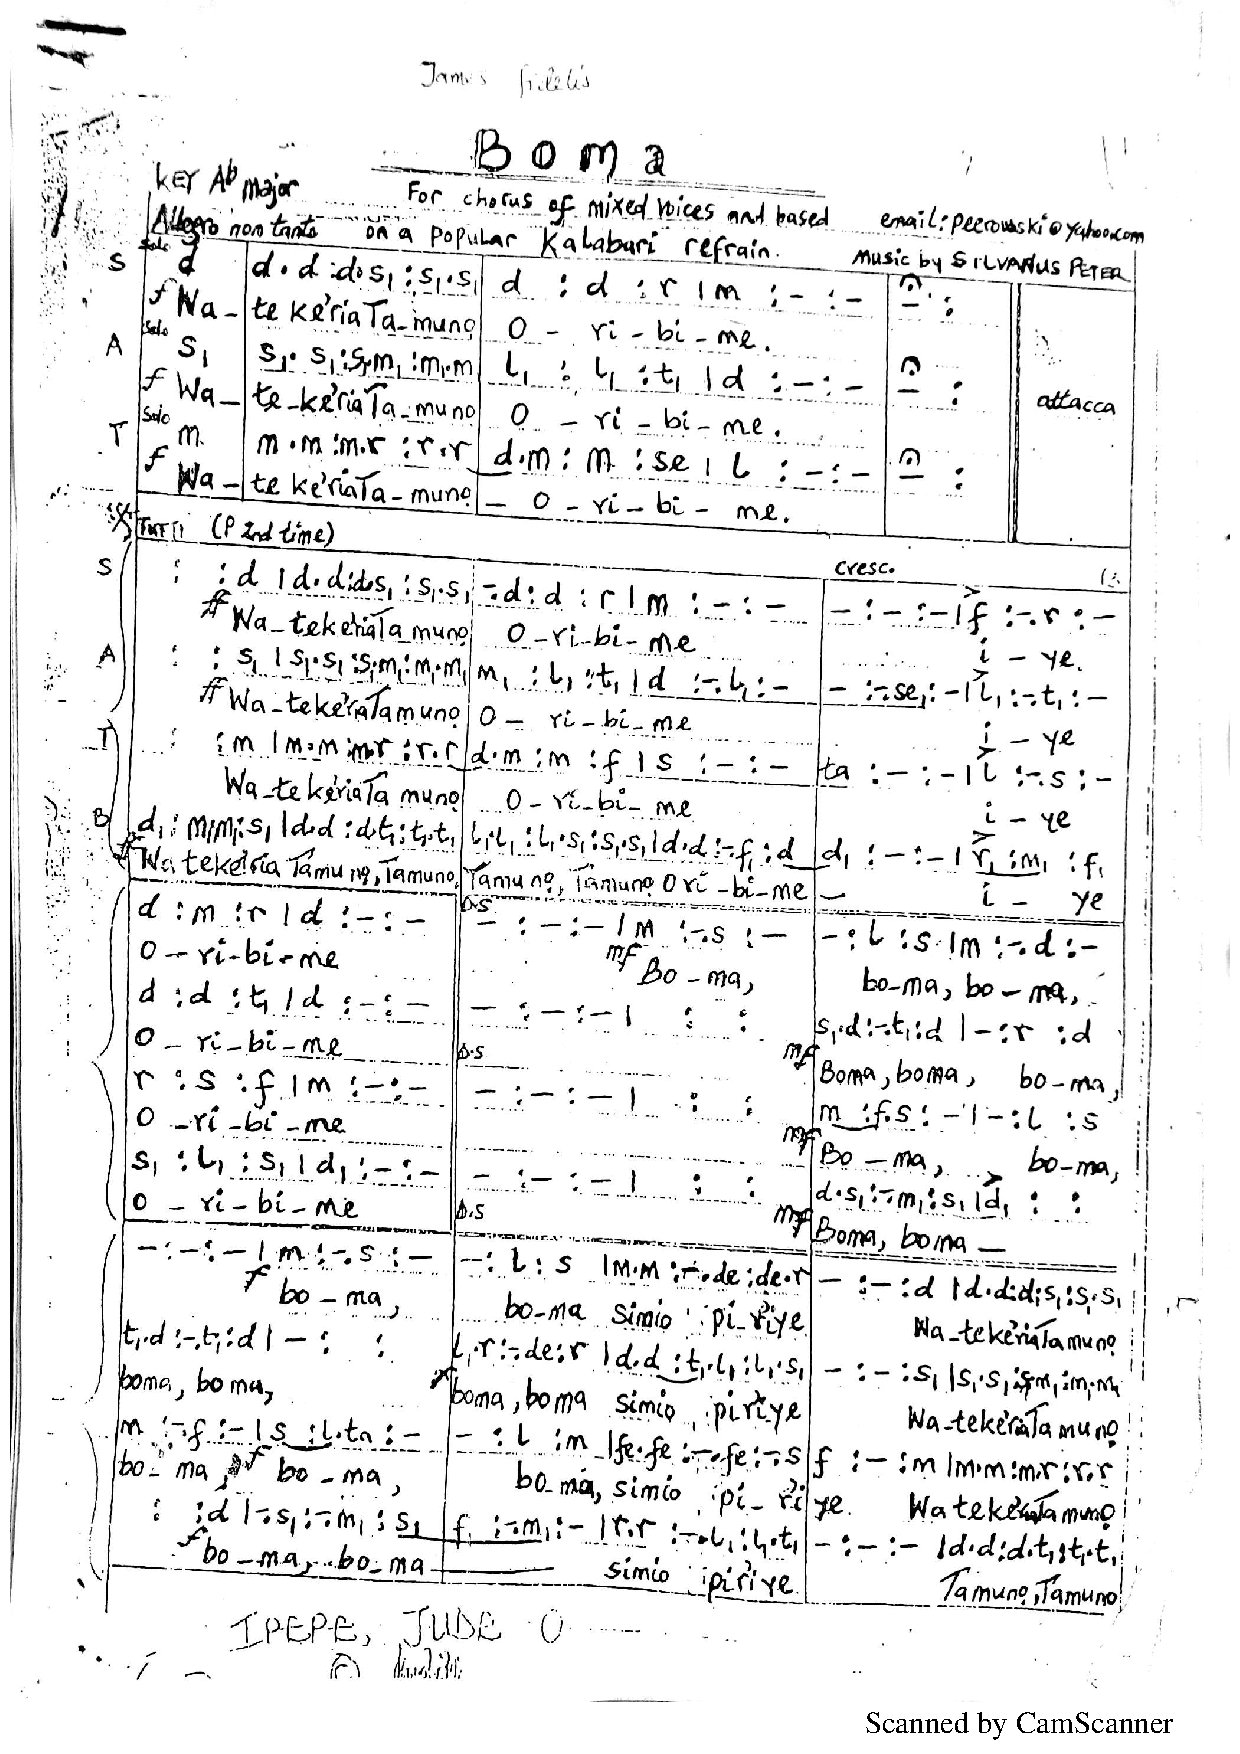 James fidelis
Boma
KEY Ab major
For chorus of mixed voices and based
email: peerowski@yahoo.com
Allegro non tanto on a popular Kalabari refrain.
Music by SILVANUS PETER
Solo
S d | d.d :d.s₁ :s₁.s₁ | d :d :r | m :- :- | - :
f Wa_ te ke'ria Ta_muno O - ri - bi - me.
Solo
A s₁ | s₁.s₁ :s₁.m₁ :m₁.m₁ | l₁ :l₁ :t₁ | d :- :- | - : attacca
f Wa_ te_ke'ria Ta_muno O - ri - bi - me.
Solo
T m | m.m :m.r :r.r | d.m :m :se | l :- :- | - :
f Wa_ te ke'ria Ta_muno _ O - ri - bi - me.
TUTTI (P 2nd time)
cresc.
S : :d | d.d :d.s₁ :s₁.s₁ | -.d :d :r | m :- :- | - :- :- | f :-.r :-
ff Wa_teke'riaTa muno O-ri-bi-me i - ye.
A : :s₁ | s₁.s₁ :s₁.m₁ :m₁.m₁ | m₁ :l₁ :t₁ | d :-.l₁ :- | - :-.se₁ :- | l₁ :-.t₁ :-
ff Wa_teke'riaTamuno O - ri-bi-me i - ye
T : :m | m.m :m.r :r.r | d.m :m :f | s :- :- | ta :- :- | l :-.s :-
Wa_te ke'riaTa muno O-ri-bi-me i - ye
B d₁ :m₁.m₁ :s₁ | d.d :d.t₁ :t₁.t₁ | l₁.l₁ :l₁.s₁ :s₁.s₁ | d.d :-.f₁ :d | d₁ :- :- | r₁ :m₁ :f₁
ff Wa teke'ria Tamuno, Tamuno, Tamuno, Tamuno O ri-bi-me _ i - ye
D.S
d :m :r | d :- :- | - :- :- | m :-.s :- | - :l :s | m :-.d :-
O - ri-bi-me mf Bo-ma, bo-ma, bo-ma,
d :d :t₁ | d :- :- | - :- :- | : : | s₁.d :-.t₁ :d | - :r :d
O - ri-bi-me D.S mf Boma, boma, bo-ma,
r :s :f | m :- :- | - :- :- | : : | m :f.s :- | - :l :s
O - ri-bi-me mf Bo-ma, bo-ma,
s₁ :l₁ :s₁ | d₁ :- :- | - :- :- | : : | d.s₁ :-.m₁ :s₁ | d₁ : :
O - ri-bi-me D.S mf Boma, boma _
- :- :- | m :-.s :- | - :l :s | m.m :-.de :de.r | - :- :d | d.d :d.s₁ :s₁.s₁
f bo-ma, bo-ma simio ipi-riye Wa-teke'riaTamuno
t₁.d :-.t₁ :d | - : : | l₁.r :-.de :r | d.d :t₁.l₁ :l₁.s₁ | - :- :s₁ | s₁.s₁ :s₁.m₁ :m₁.m₁
boma, boma, f boma, boma simio ipiriye Wa-teke'riaTamuno
m :-.f :- | s :l.ta :- | - :l :m | fe.fe :-.fe :-.s | f :- :m | m.m :m.r :r.r
bo-ma, f bo-ma, bo-ma, simio ipi-riye. Wa teke'riaTamuno
: :d | -.s₁ :-.m₁ :s₁ | f₁ :-.m₁ :- | r.r :-.l₁ :l₁.t₁ | - :- :- | d.d :d.t₁ :t₁.t₁
f bo-ma, bo-ma simio ipiriye Tamuno, Tamuno
IPEPE, JUDE O
Scanned by CamScanner